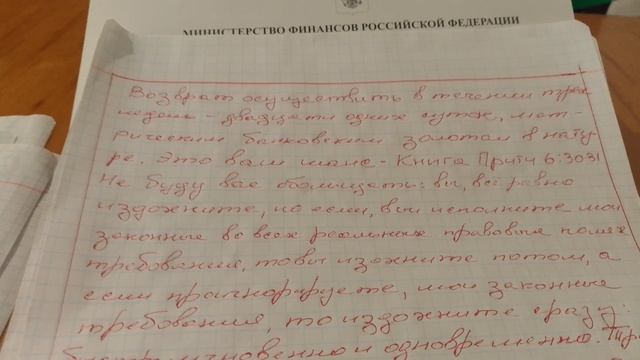 МИНИСТЕРСТВО ФИНАНСОВ РОССИЙСКОЙ ФЕДЕРАЦИИ
Возврат осуществить в течении трёх
недель - двадцати одних суток, мет-
рическим банковским золотом в нату-
ре. Это ваш шанс - Книга Притч 6:30 31
Не буду вас обольщать: вы, всё равно
издохните, но если, вы исполните мои
законные во всех реальных правовых полях
требования, то вы издохните потом, а
если проигнорируете, мои законные
требования, то издохните сразу:
мгновенно и одновременно.